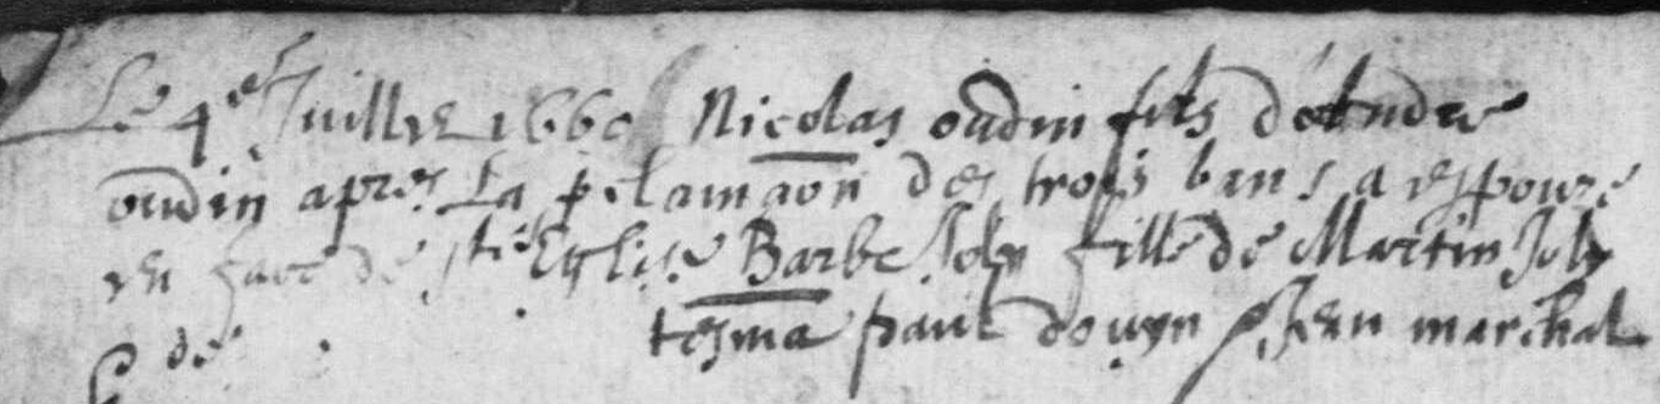 Le 4e Juillet 1660 Nicolas oudin fils d'Andre
oudin apres La pclamaon des trois bans a espouze
en face de ste Eglise Barbe Joly fille de Martin Joly
de tesma paul Jean marchal